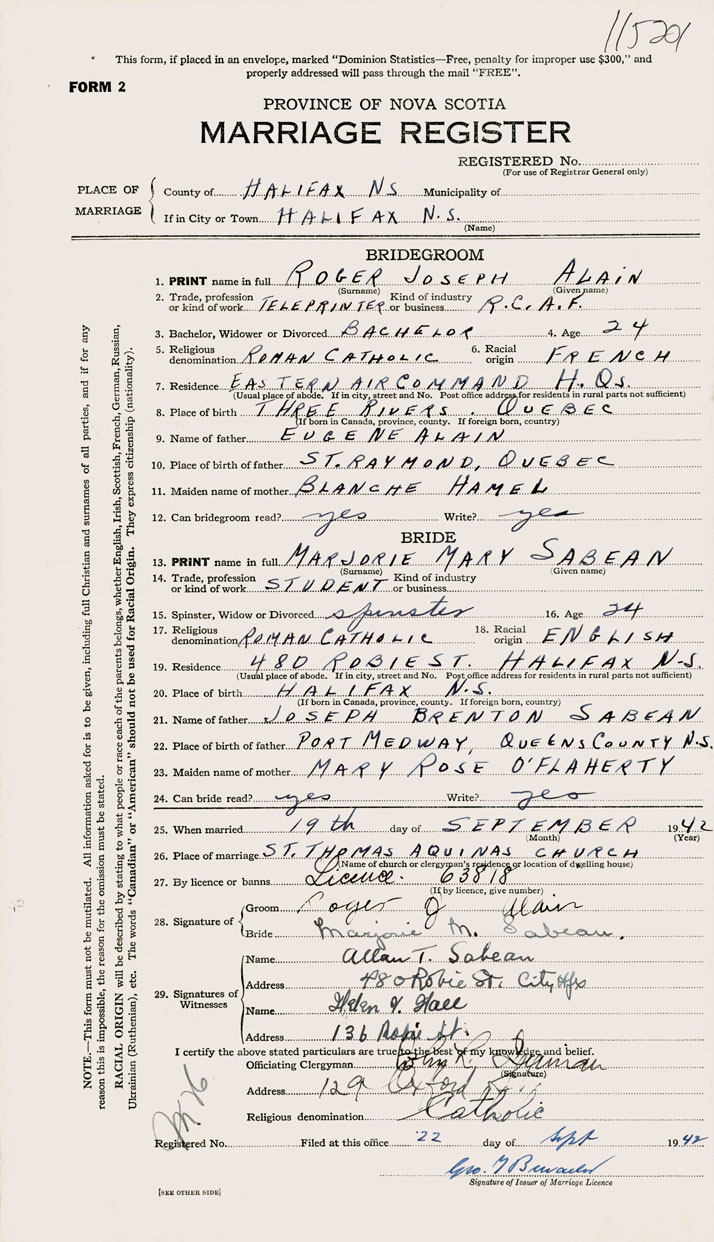 11520
This form, if placed in an envelope, marked "Dominion Statistics—Free, penalty for improper use $300," and
properly addressed will pass through the mail "FREE".
FORM 2
PROVINCE OF NOVA SCOTIA
MARRIAGE REGISTER
REGISTERED No.
(For use of Registrar General only)
PLACE OF MARRIAGE
County of HALIFAX NS Municipality of
If in City or Town HALIFAX N.S.
(Name)
BRIDEGROOM
1. PRINT name in full ROGER JOSEPH ALAIN
(Surname) (Given name)
2. Trade, profession or kind of work TELEPRINTER Kind of industry or business R.C.A.F.
3. Bachelor, Widower or Divorced BACHELOR 4. Age 24
5. Religious denomination ROMAN CATHOLIC 6. Racial origin FRENCH
7. Residence EASTERN AIR COMMAND H.QS.
(Usual place of abode. If in city, street and No. Post office address for residents in rural parts not sufficient)
8. Place of birth THREE RIVERS. QUEBEC
(If born in Canada, province, county. If foreign born, country)
9. Name of father EUGENE ALAIN
10. Place of birth of father ST. RAYMOND, QUEBEC
11. Maiden name of mother BLANCHE HAMEL
12. Can bridegroom read? yes Write? yes
BRIDE
13. PRINT name in full MARJORIE MARY SABEAN
(Surname) (Given name)
14. Trade, profession or kind of work STUDENT Kind of industry or business
15. Spinster, Widow or Divorced spinster 16. Age 24
17. Religious denomination ROMAN CATHOLIC 18. Racial origin ENGLISH
19. Residence 480 ROBIE ST. HALIFAX N-S.
(Usual place of abode. If in city, street and No. Post office address for residents in rural parts not sufficient)
20. Place of birth HALIFAX N.S.
(If born in Canada, province, county. If foreign born, country)
21. Name of father JOSEPH BRENTON SABEAN
22. Place of birth of father PORT MEDWAY, QUEENS COUNTY N.S.
23. Maiden name of mother MARY ROSE O'FLAHERTY
24. Can bride read? yes Write? yes
25. When married 19th day of SEPTEMBER 1942
(Month) (Year)
26. Place of marriage ST. THOMAS AQUINAS CHURCH
(Name of church or clergyman's residence or location of dwelling house)
27. By licence or banns Licence. 63818
(If by licence, give number)
28. Signature of
Groom Roger J Alain
Bride Marjorie M. Sabean.
29. Signatures of Witnesses
Name Allan T. Sabean
Address 480 Robie St. City, Hfx
Name Helen Y. Hall
Address 136 Robie St.
I certify the above stated particulars are true to the best of my knowledge and belief.
Officiating Clergyman
(Signature)
Address 129 Oxford
Religious denomination Catholic
Registered No. Filed at this office 22 day of Sept 1942
Geo.
Signature of Issuer of Marriage Licence
[SEE OTHER SIDE]
NOTE.—This form must not be mutilated. All information asked for is to be given, including full Christian and surnames of all parties, and if for any
reason this is impossible, the reason for the omission must be stated.
RACIAL ORIGIN will be described by stating to what people or race each of the parents belongs, whether English, Irish, Scottish, French, German, Russian,
Ukrainian (Ruthenian), etc. The words "Canadian" or "American" should not be used for Racial Origin. They express citizenship (nationality).